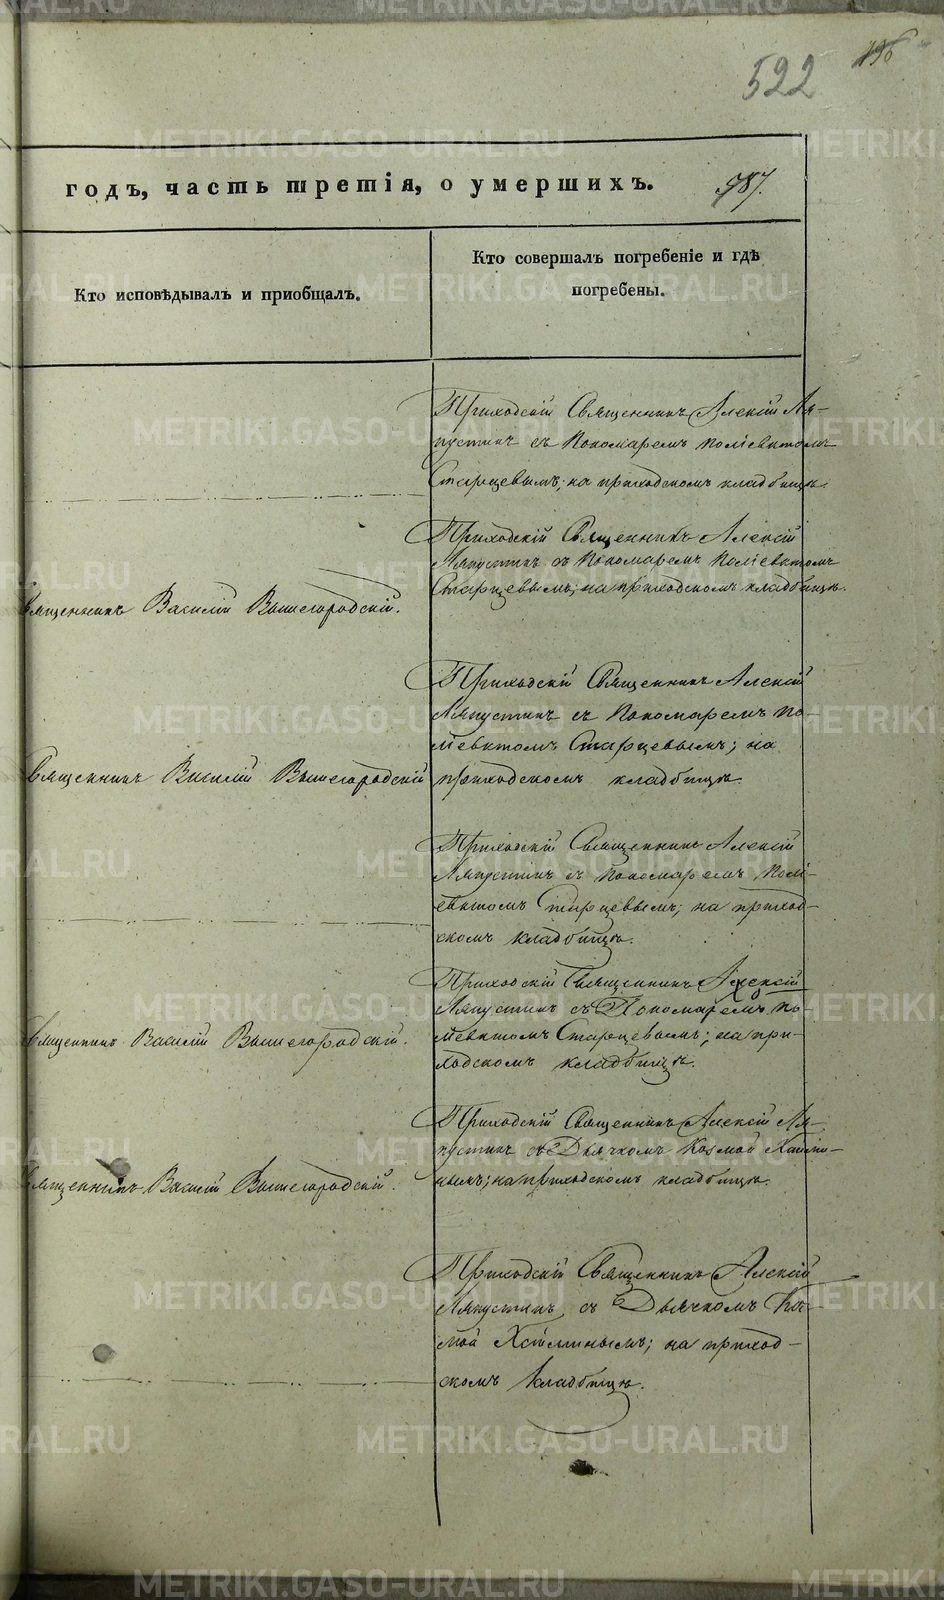 522
годъ, часть третія, о умершихъ.
987.
Кто исповѣдывалъ и приобщалъ.
Кто совершалъ погребеніе и гдѣ
погребены.
Приходскій Священникъ Алексій Ля-
пустинъ съ Пономаремъ Поліевктомъ
Старцевымъ; на приходскомъ кладбищѣ.
Священникъ Василій Вышегородскій.
Приходскій Священникъ Алексій
Ляпустинъ съ Пономаремъ Поліевктомъ
Старцевымъ; на приходскомъ кладбищѣ.
Священникъ Василій Вышегородскій
Приходскій Священникъ Алексій
Ляпустинъ съ Пономаремъ По-
ліевктомъ Старцевымъ; на
приходскомъ кладбищѣ.
Приходскій Священникъ Алексій
Ляпустинъ съ Пономаремъ Полі-
евктомъ Старцевымъ; на приход-
скомъ кладбищѣ.
Священникъ Василій Вышегородскій.
Приходскій Священникъ Алексій
Ляпустинъ съ Пономаремъ По-
ліевктомъ Старцевымъ; на при-
ходскомъ кладбищѣ.
Священникъ Василій Вышегородскій.
Приходскій Священникъ Алексій Ля-
пустинъ съ Дьячкомъ Козмой
на приходскомъ кладбищѣ.
Приходскій Священникъ Алексій
Ляпустинъ съ Дьячкомъ Коз-
мой на приход-
скомъ кладбищѣ.
METRIKI.GASO-URAL.RU